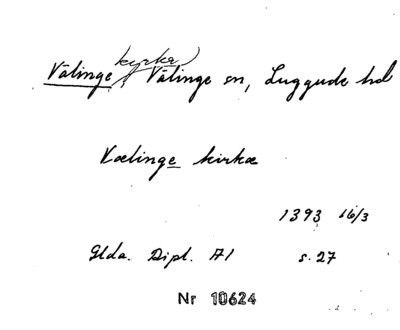 Välinge kyrka, Välinge sn, Luggude hd
Vælinge kirkæ
1393 16/3
Glda. Dipl. A1 s. 27
Nr 10624